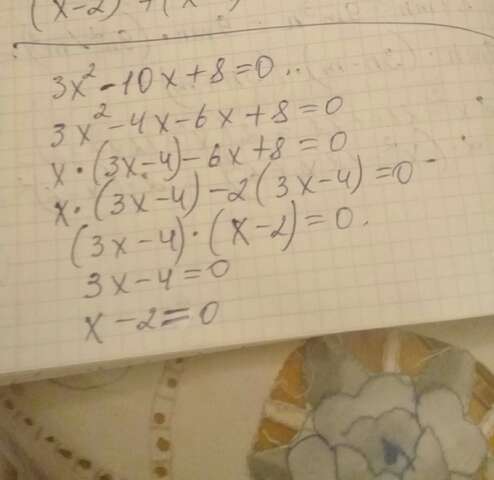 3x² - 10x + 8 = 0
3x² - 4x - 6x + 8 = 0
x · (3x - 4) - 6x + 8 = 0
x · (3x - 4) - 2(3x - 4) = 0
(3x - 4) · (x - 2) = 0.
3x - 4 = 0
x - 2 = 0